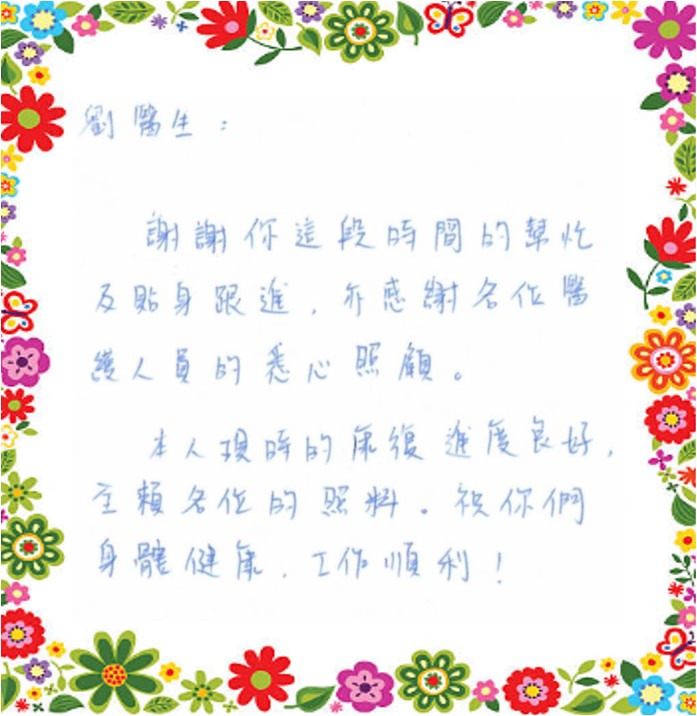 劉醫生：
謝謝你這段時間的幫忙
及貼身跟進，亦感謝各位醫
護人員的悉心照顧。
本人現時的康復進度良好，
全賴各位的照料。祝你們
身體健康，工作順利！